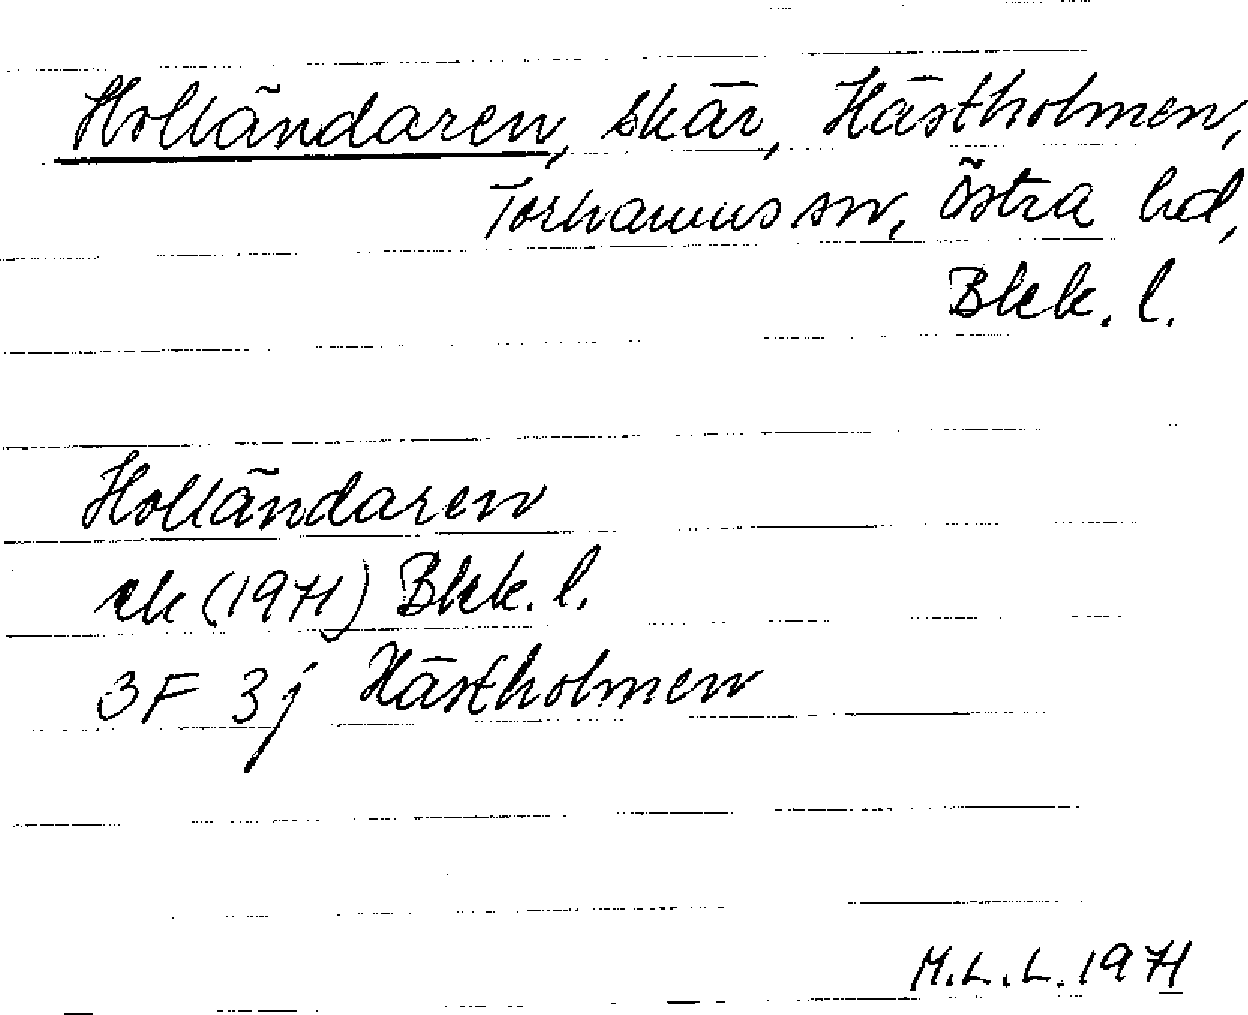 Holländaren, skär, Hästholmen,
Torhamns sn, Östra hd,
Blek. l.
Holländaren
ek (1971) Blek. l.
3F 3j Hästholmen
M.L.L. 1971